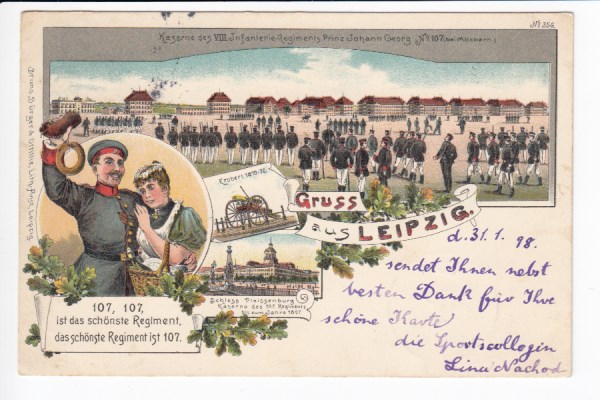 No 356.
Kaserne des VIII. Infanterie-Regiments Prinz Johann Georg No 107 (bei Möckern)
Erobert 1870-71.
Gruss
aus LEIPZIG.
d. 31. 1. 98.
sendet Ihnen nebst
besten Dank für Ihre
schöne Karte
die Sportscollegin
Lina Nachod
Schloss Pleissenburg
Kaserne des 107. Regiments
bis zum Jahre 1897.
107, 107,
ist das schönste Regiment,
das schönste Regiment ist 107.
Bruno Bürger &
Lith. Anst. Leipzig.